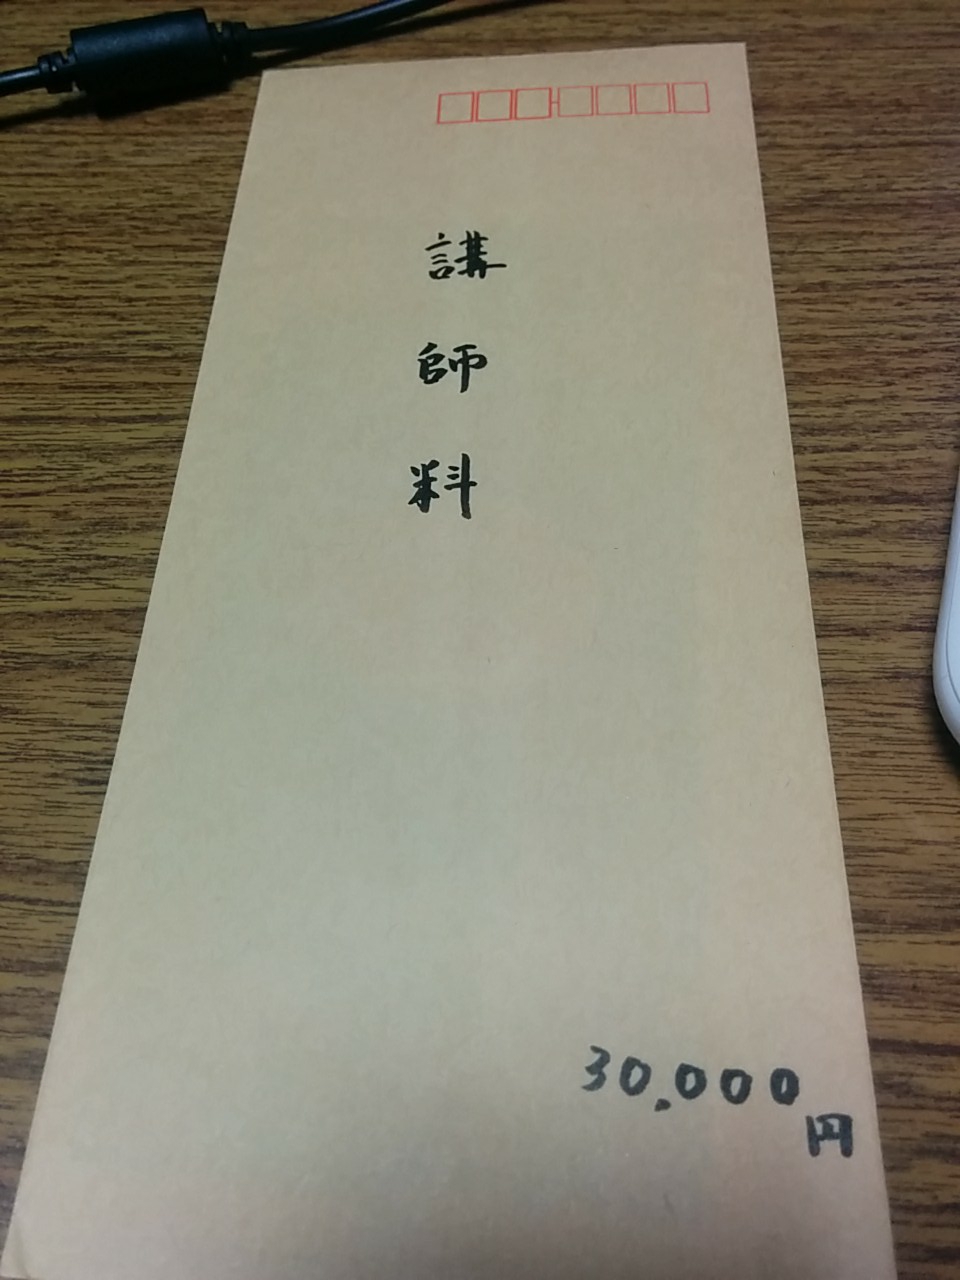 講師料
30,000
円